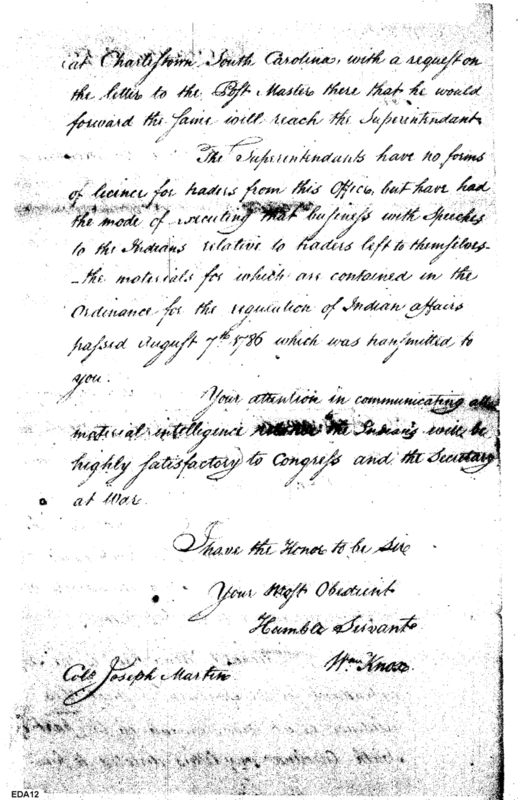 at Charlestown South Carolina, with a request on
the letter to the Post Master there that he would
forward the same will reach the Superintendant.
The Superintendants have no forms
of licence for traders from this Office, but have had
the mode of executing that business with Speeches
to the Indians relative to traders left to themselves-
-the materials for which are contained in the
Ordinance for the regulation of Indian affairs
passed August 7th 1786 which was transmitted to
you.
Your attention in communicating all
material intelligence the Indians will be
highly satisfactory to Congress and the Secretary
at War.
I have the Honor to be Sir
Your Most Obedient
Humble Servant
Wm Knox.
Colo Joseph Martin
EDA12